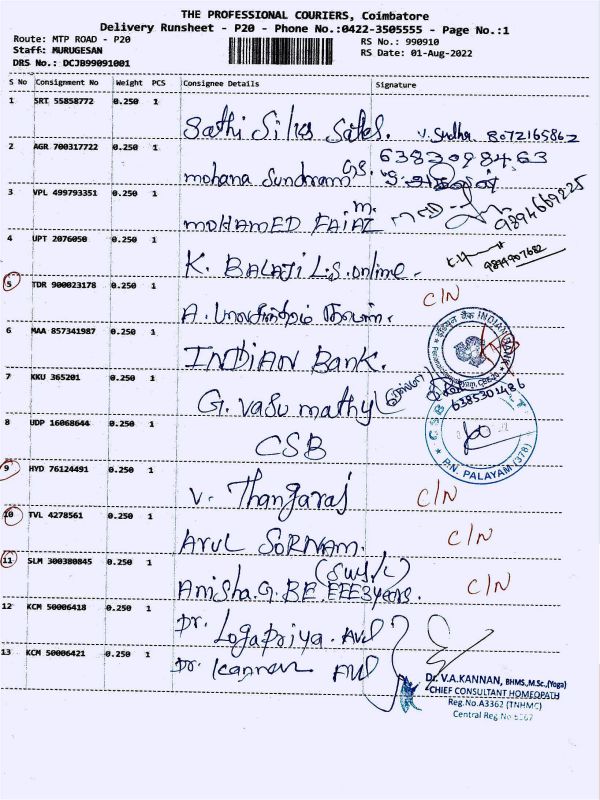 THE PROFESSIONAL COURIERS, Coimbatore
Delivery Runsheet - P20 - Phone No.:0422-3505555 - Page No.:1
Route: MTP ROAD - P20
Staff: MURUGESAN
DRS No.: DCJB99091001
RS No.: 990910
RS Date: 01-Aug-2022
S No Consignment No Weight PCS Consignee Details Signature
1 SRT 55858772 0.250 1
Sathi Silks Sales. V. Sudha 8072165862
2 AGR 700317722 0.250 1
mohana Sundram GS. 6383098463
3 VPL 499793351 0.250 1
MOHAMED FAIAZ m. 9894669225
4 UPT 2076050 0.250 1
K. BALAJI L.S. online. 9894907682
5 TDR 900023178 0.250 1 C/N
A.
6 MAA 857341987 0.250 1
INDIAN BANK. INDIAN BANK
7 KKU 365201 0.250 1
G. Vasu mathy 6385301486
8 UDP 16068644 0.250 1
CSB
P.N. PALAYAM (378)
9 HYD 76124491 0.250 1
V. Thangaraj C/N
10 TVL 4278561 0.250 1
ARUL SORNAM. C/N
11 SLM 300380845 0.250 1
Anisha.G. BE. EEE 3years. C/N
12 KCM 50006418 0.250 1
Dr. Logapriya. AVD
13 KCM 50006421 0.250 1
Dr. Kannan AVD
Dr. V.A.KANNAN, BHMS.,M.Sc.,(Yoga)
CHIEF CONSULTANT HOMEOPATH
Reg.No.A3362 (TNHMC)
Central Reg No